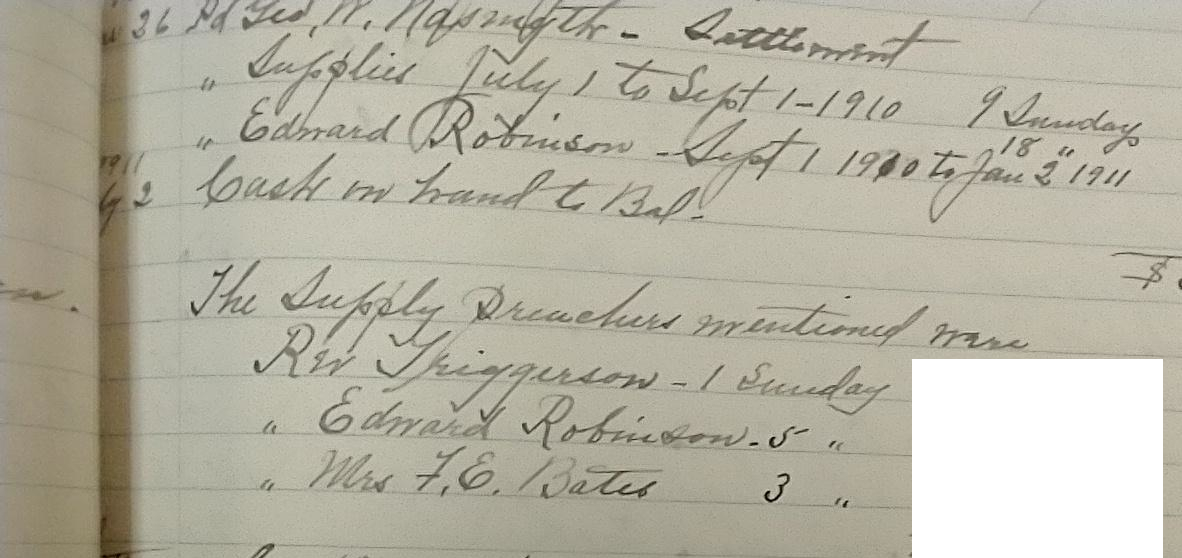 26 Pd Geo. W. Nasmyth - Settlement
" Supplies July 1 to Sept 1-1910 9 Sundays
18 "
" Edward Robinson - Sept 1 1910 to Jan 2 1911
1911
2 Cash on hand to Bal.
$
The Supply Preachers mentioned were
Rev Triggerson - 1 Sunday
" Edward Robinson - 5 "
" Mrs F. E. Bates 3 "